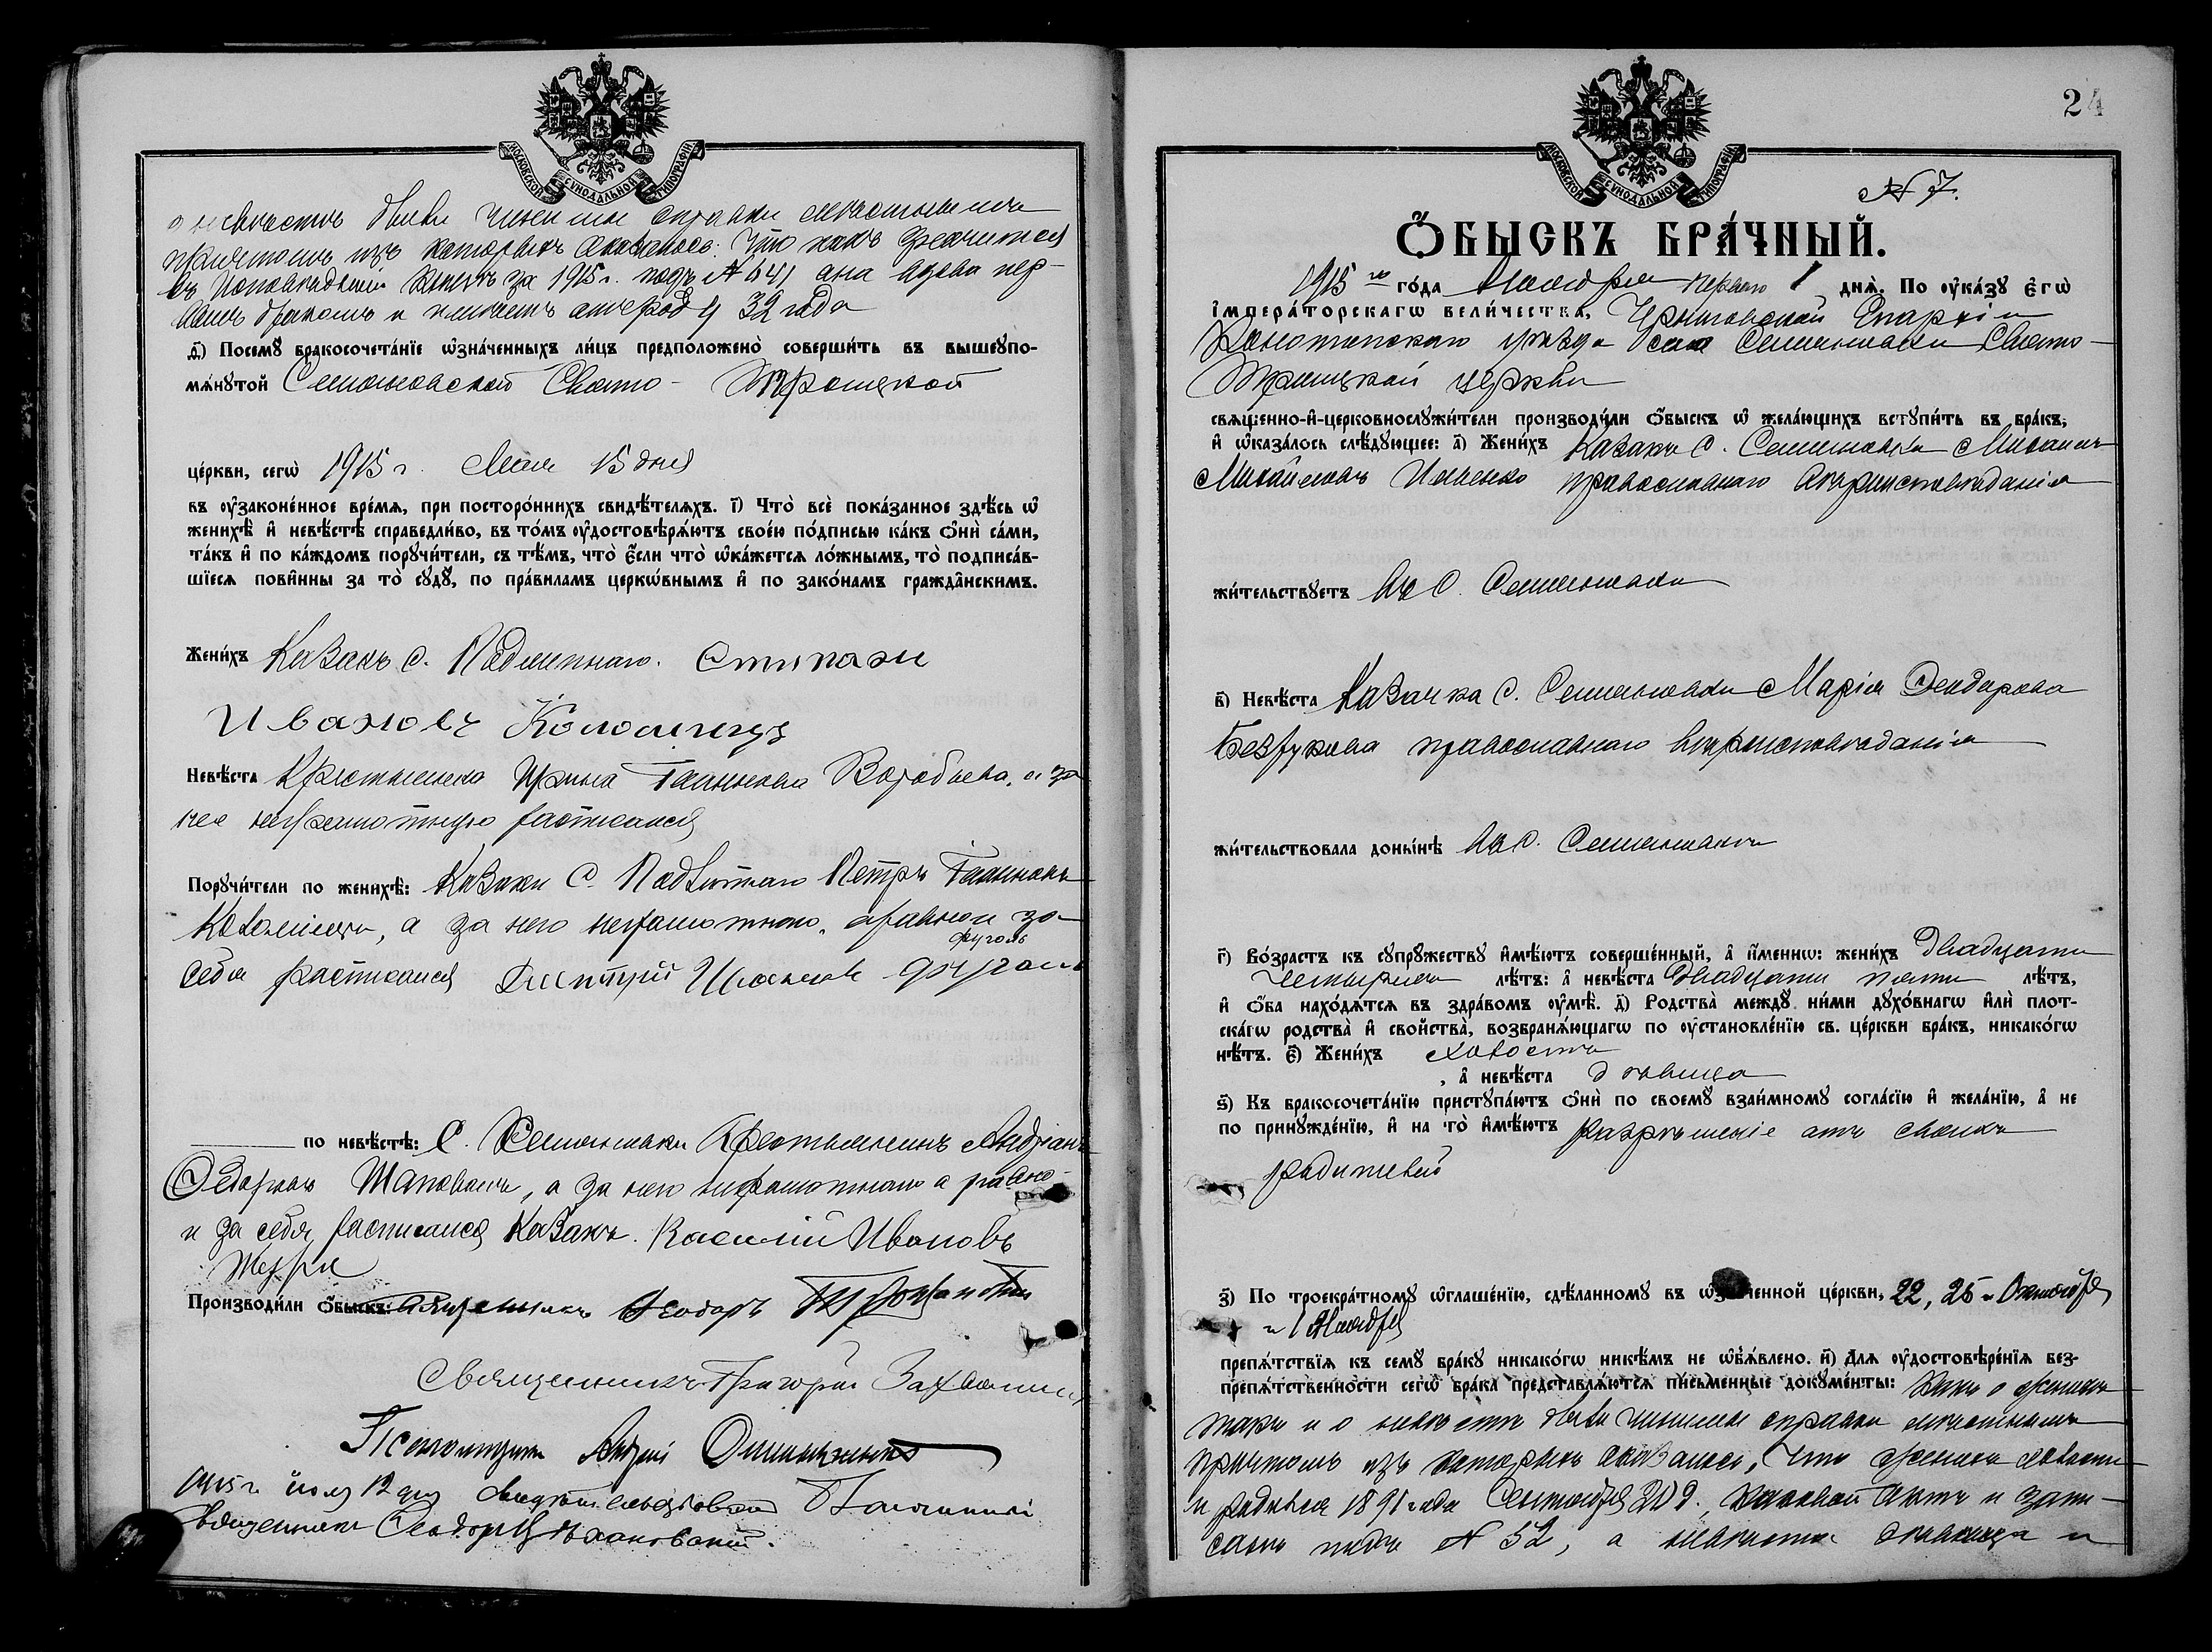 МОСКОВСКОЙ СѴНОДАЛЬНОЙ ТИПОГРАФІИ
о невѣстѣ были чинимы справки мѣстнымъ
причтомъ изъ которыхъ оказалось: что какъ значится
въ Исповѣдной книгѣ за 1915 г. подъ № 641 она вдова пер-
вымъ бракомъ и имѣетъ отъ роду 32 года
д҃і) Посемꙋ бракосочетанїе ѡзначенныхъ лицъ предположено совершить въ вышеꙋпо-
мѧнꙋтой Семяновской Свято - Троицкой
церкви, сегѡ 1915 г. Мая 15 дня
въ оуꙁаконенное времѧ, при постороннихъ свидѣтелѧхъ. і҃) Что все показанное здѣсь ѡ
женихѣ и невѣстѣ справедливо, въ томъ оудостовѣрѧютъ своею подписью какъ ѻни сами,
такъ и по каждомъ порꙋчители, съ тѣмъ, что если что ѡкажетсѧ ложнымъ, то подписав-
шїесѧ повинны за то сꙋдꙋ, по правиламъ церкѡвнымъ и по законамъ гражданскимъ.
Женихъ Казакъ с. Подлипнаго. Степанъ
Ивановъ Коломіецъ
Невѣста Крестьянка Ирина Воробьева, а за
нее неграмотную расписался
Порꙋчители по женихѣ: Казаки с. Подлипнаго Петръ
Коломіецъ, а за него неграмотного, а равно и за
другой
себя расписался Дмитрій
по невѣстѣ: с. Семяновки Крестьянинъ Андріанъ
Федоровъ Шаповалъ, а за него неграмотного а равно
и за себя расписался Казакъ Василій Ивановъ
Производили ѻбыскъ: Священникъ Ѳеодоръ
Священникъ Григорій
Псаломщикъ Андрій
1915 г. іюля 12 дня свидѣтельствовалъ Благочинный
Священникъ Ѳеодоръ
24
МОСКОВСКОЙ СѴНОДАЛЬНОЙ ТИПОГРАФІИ
№ 7.
ѺБЫСКЪ БРАЧНЫЙ.
1915 го года Ноября перваго 1 днѧ. По оуказꙋ егѡ
їмператорскагѡ величества, Черниговской Епархіи
Конотопскаго уѣзда села Семяновки Свято-
Троицкой церкви
свѧщенно-и-церковнослꙋжители производили ѻбыскъ ѡ желающихъ встꙋпить въ бракъ,
и ѡказалось слѣдꙋющее: а҃) Женихъ Казакъ с. Семяновки Михаилъ
Михайловъ Ильенко православнаго вѣроисповѣданія
жительствꙋетъ въ с. Семяновки
в҃) Невѣста Казачка с. Семяновки Марія Ѳеодорова
Безрукова православнаго вѣроисповѣданія
жительствовала донынѣ въ с. Семяновки
г҃) Возрастъ къ сꙋпрꙋжествꙋ имѣютъ совершенный, а именнѡ: женихъ двадцати
четырехъ лѣтъ: а невѣста двадцати пяти лѣтъ,
и ѻба находѧтсѧ въ здравомъ оумѣ. д҃) Родства междꙋ ними дꙋховнагѡ или плот-
скагѡ родства и свойства, возбранѧющагѡ по оустановленїю св. церкви бракъ, никакогѡ
нѣтъ. є҃) Женихъ холостъ
, а невѣста дѣвица
ѕ҃) Къ бракосочетанїю пристꙋпаютъ ѻни по своемꙋ взаимномꙋ согласїю и желанїю, а не
по принꙋжденїю, и на то имѣютъ разрѣшеніе отъ своихъ
родителей
з҃) По троекратномꙋ ѡглашенїю, сдѣланномꙋ въ ѡзначенной церкви, 22, 25 Октября
и 1 Ноября
препѧтствїѧ къ семꙋ бракꙋ никакогѡ никѣмъ не ѡбъѧвлено. и҃) Длѧ оудостовѣренїѧ без-
препѧтственности сегѡ брака представлѧютсѧ письменные докꙋменты: какъ о женихѣ
такъ и о невѣстѣ были чинимы справки мѣстнымъ
причтомъ изъ которыхъ оказалось, что женихъ холостъ
и родился 1891 года Сентября 20 д., каковой актъ и запи-
санъ подъ № 52, а невѣста дѣвица и